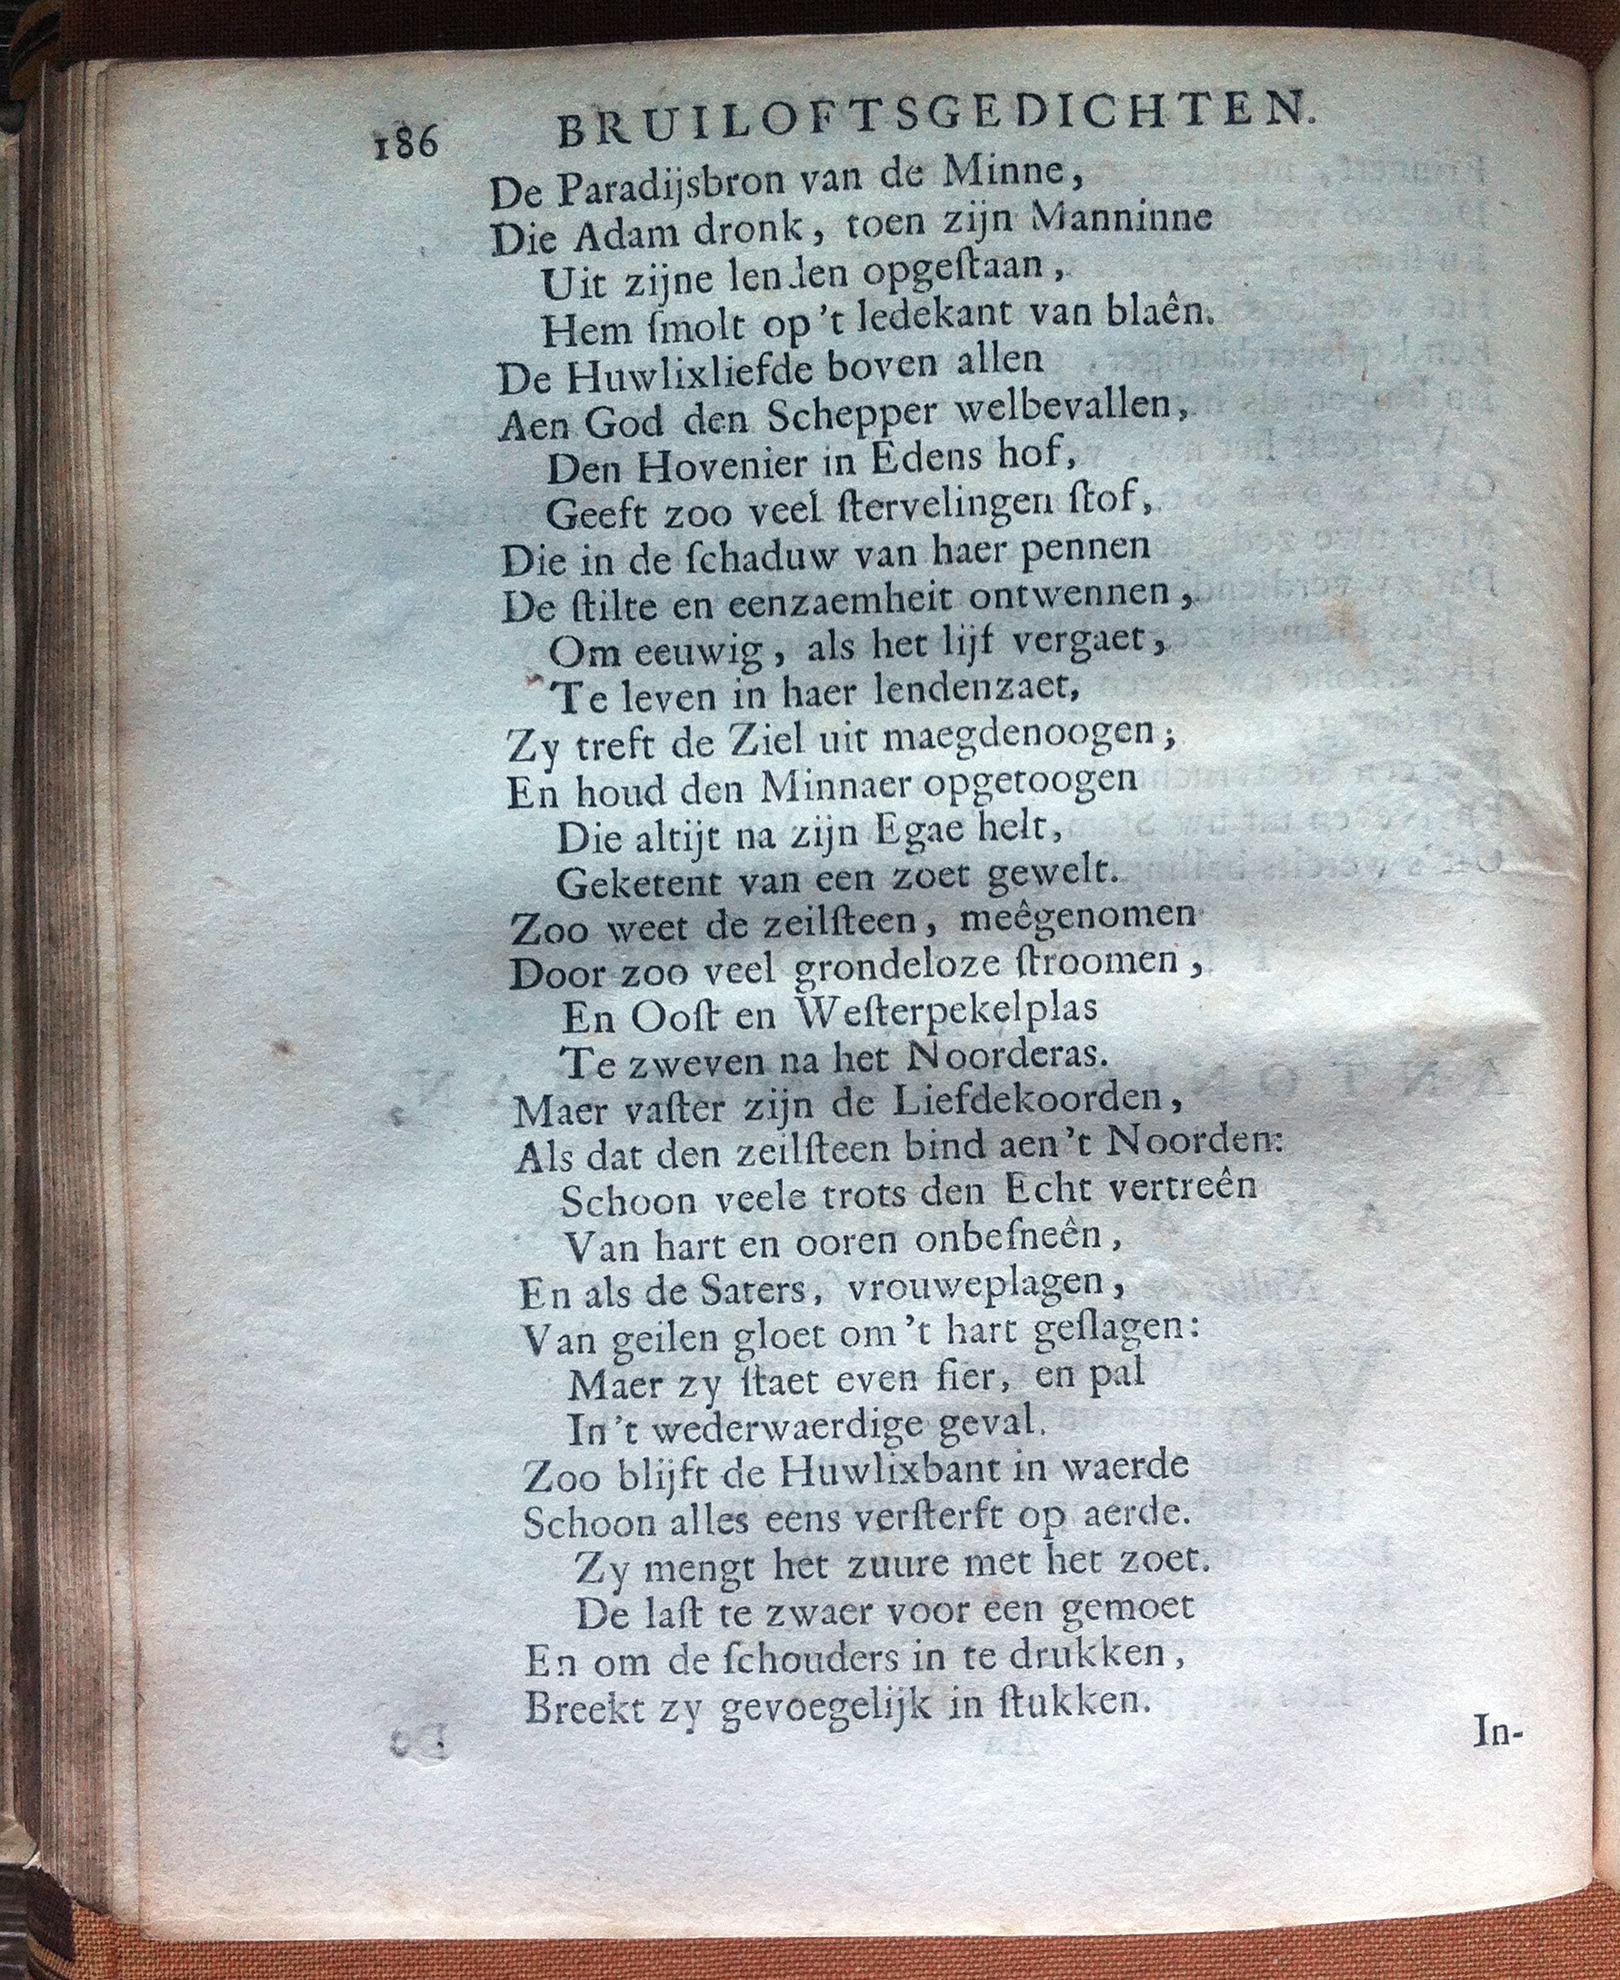 186 BRUILOFTSGEDICHTEN.
De Paradijsbron van de Minne,
Die Adam dronk, toen zijn Manninne
Uit zijne lenden opgeſtaan,
Hem ſmolt op 't ledekant van blaên.
De Huwlixliefde boven allen
Aen God den Schepper welbevallen,
Den Hovenier in Edens hof,
Geeft zoo veel ſtervelingen ſtof,
Die in de ſchaduw van haer pennen
De ſtilte en eenzaemheit ontwennen,
Om eeuwig, als het lijf vergaet,
Te leven in haer lendenzaet,
Zy treft de Ziel uit maegdenoogen;
En houd den Minnaer opgetoogen
Die altijt na zijn Egae helt,
Geketent van een zoet gewelt.
Zoo weet de zeilſteen, meêgenomen
Door zoo veel grondeloze ſtroomen,
En Ooſt en Weſterpekelplas
Te zweven na het Noorderas.
Maer vaſter zijn de Liefdekoorden,
Als dat den zeilſteen bind aen 't Noorden:
Schoon veele trots den Echt vertreên
Van hart en ooren onbeſneên,
En als de Saters, vrouweplagen,
Van geilen gloet om 't hart geſlagen:
Maer zy ſtaet even fier, en pal
In 't wederwaerdige geval.
Zoo blijft de Huwlixbant in waerde
Schoon alles eens verſterft op aerde.
Zy mengt het zuure met het zoet.
De laſt te zwaer voor een gemoet
En om de ſchouders in te drukken,
Breekt zy gevoegelijk in ſtukken.
In-